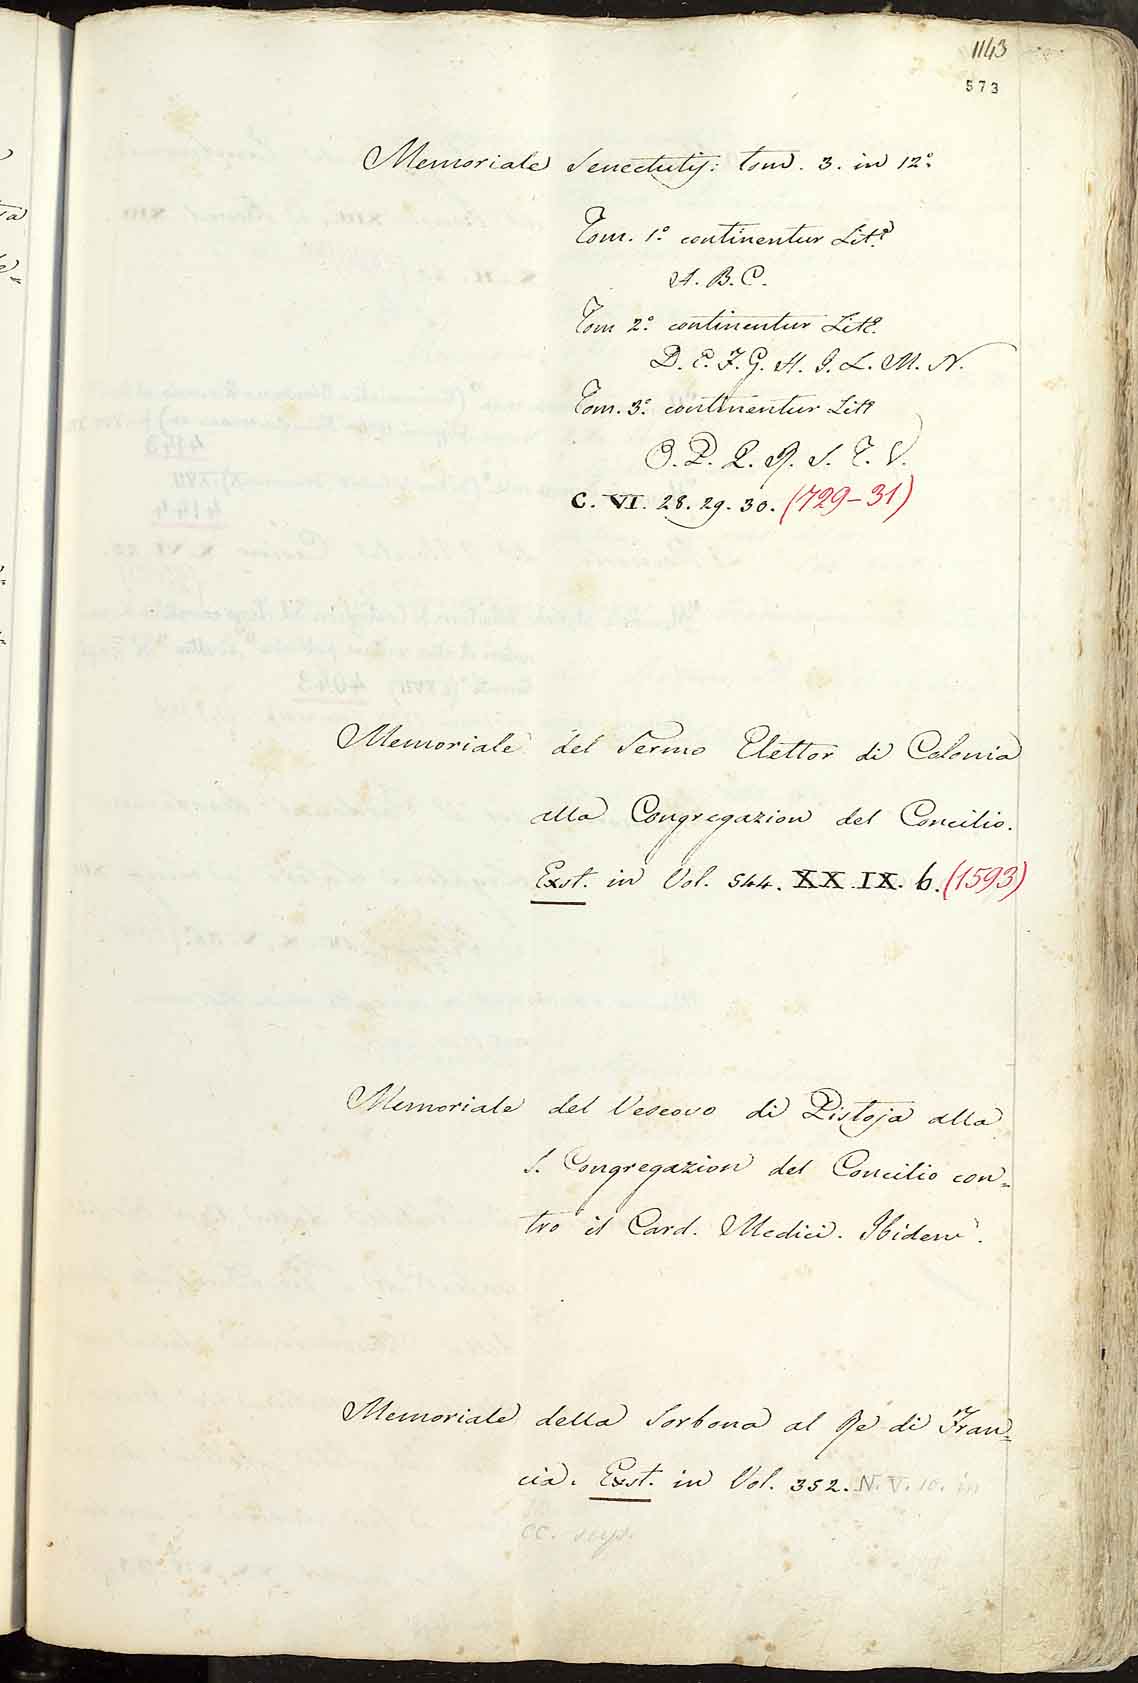 1143
573
Memoriale Senectutis: tom. 3. in 12º:
Tom. 1.º continentur Litª
A. B. C.
Tom 2.º continentur Litª.
D. E. F. G. H. I. L. M. N.
Tom. 3.º continentur Litª
O. P. Q. R. S. T. V.
C. VI. 28. 29. 30. (729-31)
Memoriale del Sermo Elettor di Colonia
alla Congregazion del Concilio.
Exst. in Vol. 544. XX IX. b. (1593)
Memoriale del Vescovo di Pistoja alla
S. Congregazion del Concilio con=
tro il Card. Medici. Ibidem.
Memoriale della Sorbona al Re di Fran=
cia. Exst. in Vol. 352. N. V. 10. in
cc. seqs.